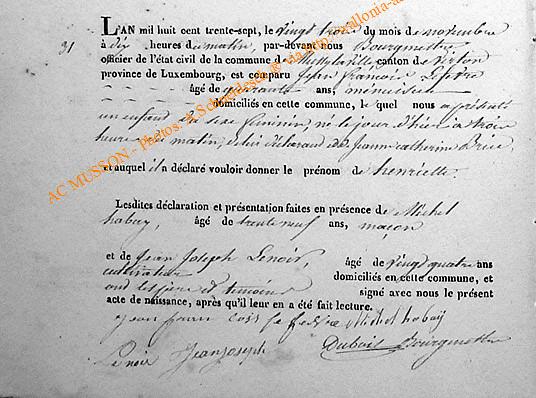 31
L'AN mil huit cent trente-sept, le vingt trois du mois de novembre
à dix heures du matin, par-devant nous Bourgmestre
officier de l'état civil de la commune de Mussylaville, canton de Virton
province de Luxembourg, est comparu Jean francois Lefevre
âgé de quarante ans, menuisier
domiciliés en cette commune, lequel nous a présenté
un enfant du sexe feminin, né le jour d'hier à trois
heures du matin, de lui déclarant et de Jeanne catherine
et auquel il a déclaré vouloir donner le prénom de henriette.
Lesdites déclaration et présentation faites en présence de Michel
habay, âgé de trente neuf ans, maçon
et de Jean Joseph Lenoir, âgé de vingt quatre ans
cultivateur domiciliés en cette commune, et
ont les père et témoins signé avec nous le présent
acte de naissance, après qu'il leur en a été fait lecture.
Michel habay
Lenoir Jean joseph Dubois Bourgmestre
AC MUSSON - Photos: A.